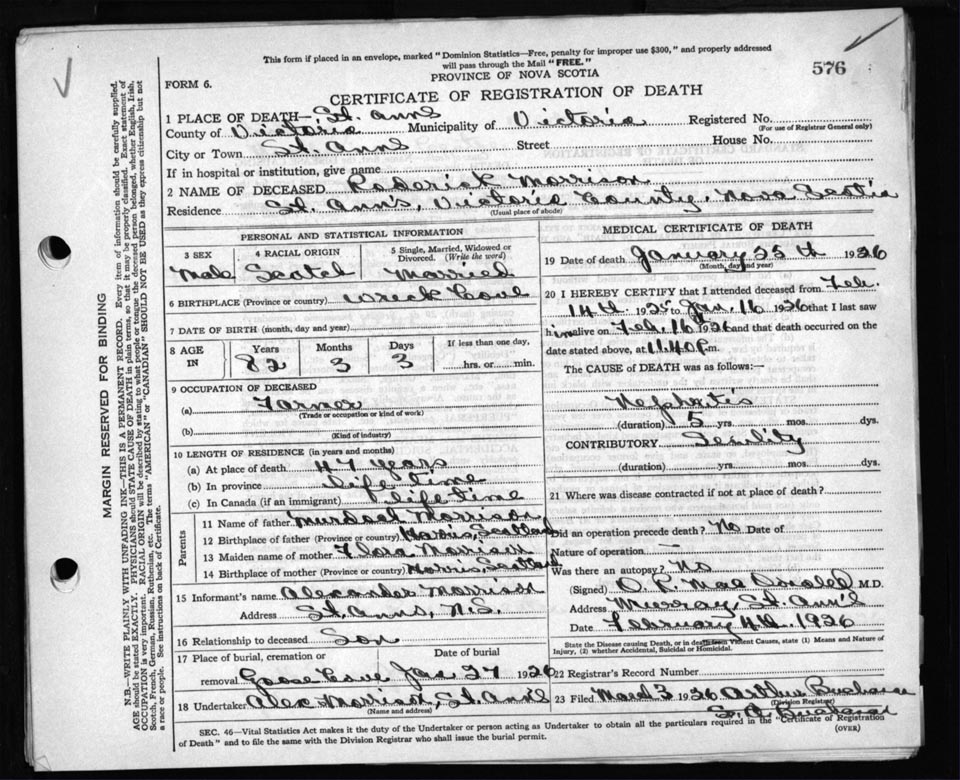 This form if placed in an envelope, marked "Dominion Statistics—Free, penalty for improper use $300," and properly addressed
will pass through the Mail "FREE."
PROVINCE OF NOVA SCOTIA
576
FORM 6.
CERTIFICATE OF REGISTRATION OF DEATH
1 PLACE OF DEATH—St. Anns
County of Victoria Municipality of Victoria Registered No.
(For use of Registrar General only)
City or Town St. Anns Street House No.
If in hospital or institution, give name
2 NAME OF DECEASED Roderick Morrison
Residence St. Ann's, Victoria County, Nova Scotia
(Usual place of abode)
PERSONAL AND STATISTICAL INFORMATION
3 SEX 4 RACIAL ORIGIN 5 Single, Married, Widowed or
Divorced. (Write the word)
Male Scotch Married
6 BIRTHPLACE (Province or country) Wreck Cove
7 DATE OF BIRTH (month, day and year)
8 AGE IN Years Months Days If less than one day,
82 3 3 hrs. or min.
9 OCCUPATION OF DECEASED
(a) Farmer
(Trade or occupation or kind of work)
(b)
(Kind of industry)
10 LENGTH OF RESIDENCE (in years and months)
(a) At place of death 47 years
(b) In province Life time
(c) In Canada (if an immigrant) Life time
Parents
11 Name of father Murdoch Morrison
12 Birthplace of father (Province or country) Harris, Scotland
13 Maiden name of mother Flora Morrison
14 Birthplace of mother (Province or country) Harris, Scotland
15 Informant's name Alexander Morrison
Address St. Anns, N.S.
16 Relationship to deceased Son
17 Place of burial, cremation or Date of burial
removal Goose Cove Jan 27 1926
18 Undertaker Alex Morrison, St. Ann's
(Name and address)
MEDICAL CERTIFICATE OF DEATH
19 Date of death January 25th 1926
(Month, day and year)
20 I HEREBY CERTIFY that I attended deceased from Feb.
14th 1925 to Jan. 16 1926 that I last saw
him alive on Feb. 16th 1926 and that death occurred on
date stated above, at 11.40 P.m.
The CAUSE of DEATH was as follows:—
Nephritis
(duration) 5 yrs. mos. dys.
CONTRIBUTORY Senility
(duration) yrs. mos. dys.
21 Where was disease contracted if not at place of death?
Did an operation precede death? No Date of
Nature of operation —
Was there an autopsy? No
(Signed) M.D.
Address Murray, St. Ann's
Date February 4th 1926
State the Disease causing Death, or in death from Violent Causes, state (1) Means and Nature of
Injury, (2) whether Accidental, Suicidal or Homicidal.
22 Registrar's Record Number
23 Filed March 3 1926 Arthur Buchanan
(Division Registrar)
Buchanan
SEC. 46—Vital Statistics Act makes it the duty of the Undertaker or person acting as Undertaker to obtain all the particulars required in the "Certificate of Registration
of Death" and to file the same with the Division Registrar who shall issue the burial permit.
(OVER)
MARGIN RESERVED FOR BINDING
N.B.—WRITE PLAINLY WITH UNFADING INK—THIS IS A PERMANENT RECORD. Every item of information should be carefully supplied.
AGE should be stated EXACTLY. PHYSICIANS should STATE CAUSE OF DEATH in plain terms, so that it may be properly classified. Exact statement of
OCCUPATION is very important. RACIAL ORIGIN will be described by stating to what people or tongue the deceased person belonged, whether English, Irish,
Scotch, French, German, Russian, Ruthenian, etc. The terms "AMERICAN" or "CANADIAN" SHOULD NOT BE USED as they express citizenship but not
a race or people. See instructions on back of Certificate.